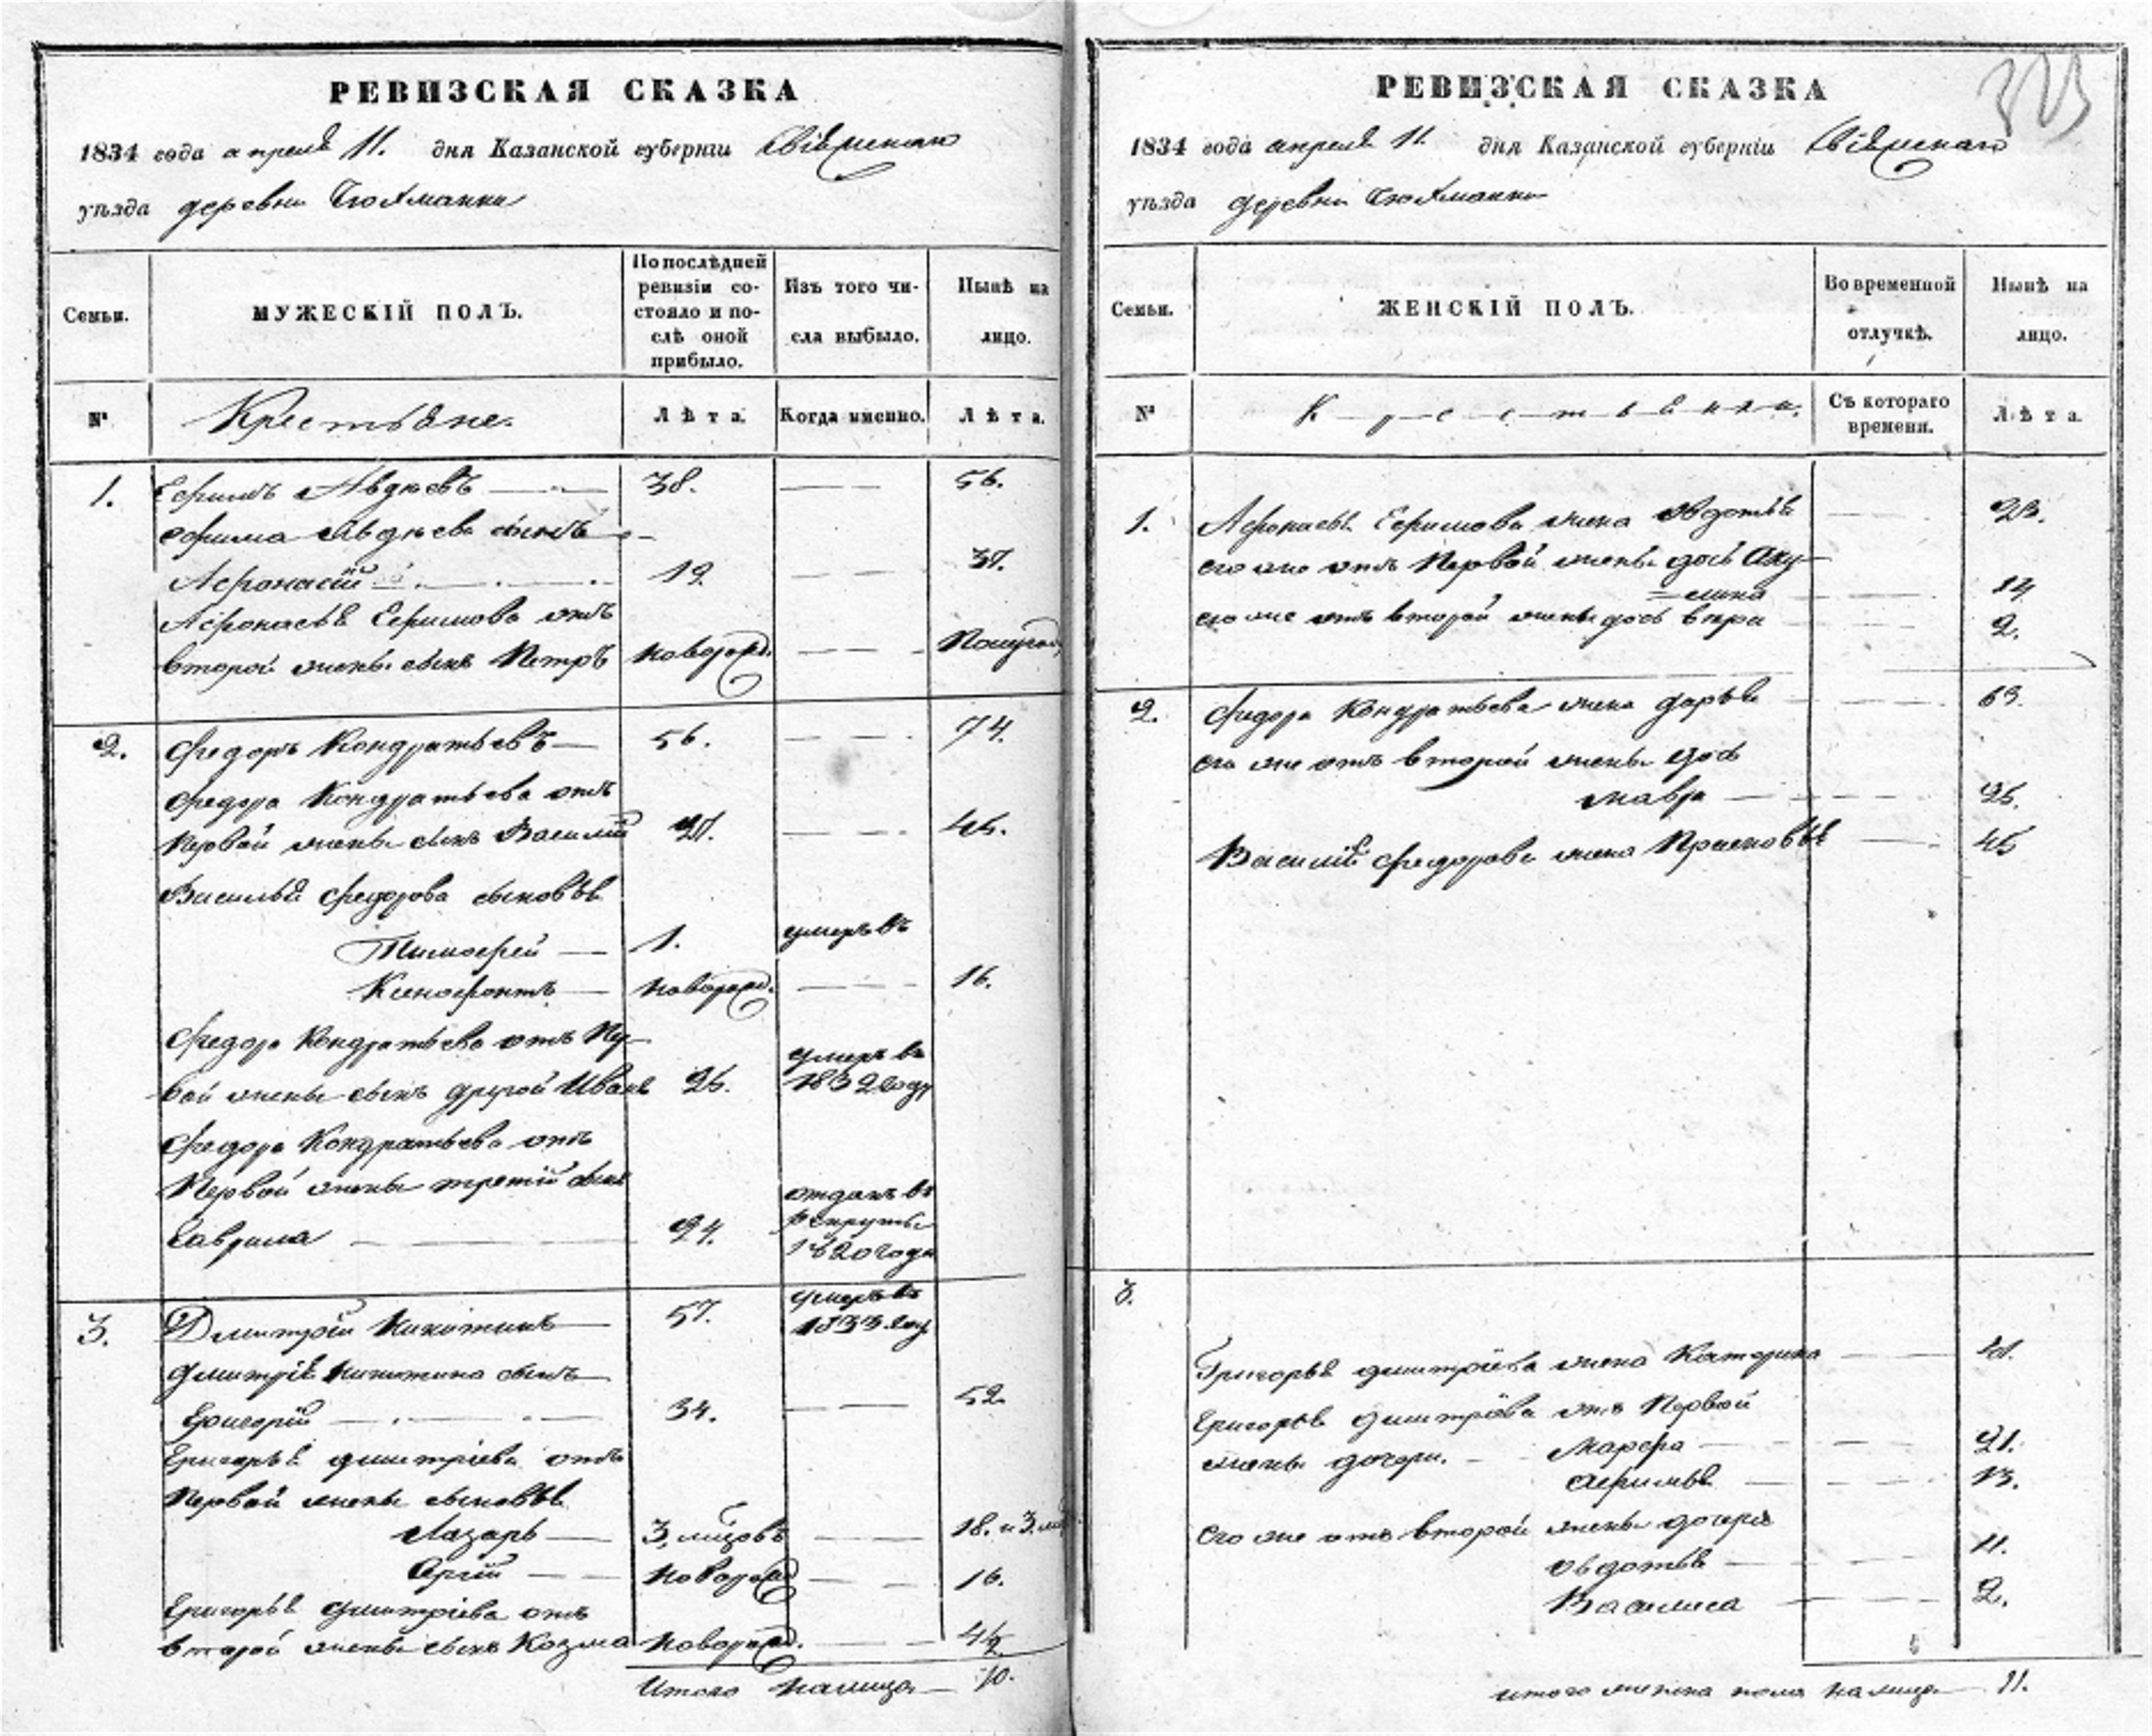 РЕВИЗСКАЯ СКАЗКА
1834 года апреля 11. дня Казанской губернiи Свiяжскаго
уѣзда деревни Бюлманки
Семьи.
МУЖЕСКIЙ ПОЛЪ.
По послѣдней
ревизiи со-
стояло и по-
слѣ оной
прибыло.
Изъ того чи-
сла выбыло.
Нынѣ на
лицо.
№
Крестьяне.
Лѣта.
Когда именно.
Лѣта.
1. Ефимъ Авдѣевъ 38. 56.
Ефима Авдѣева сынъ
Афонасiй 19. 37.
Афонасья Ефимова отъ
второй жены сынъ Петръ новорожд. Полугод.
2. Федоръ Кондратьевъ 56. 74.
Федора Кондратьева отъ
первой жены сынъ Василiй 27. 45.
Василья Федорова сыновья
Тимофей 1. умеръ въ
Ксенофонтъ новорожд. 16.
Федора Кондратьева отъ пер-
вой жены сынъ другой Иванъ 25. умеръ въ
1832 году
Федора Кондратьева отъ
первой жены третiй сынъ
Гаврила 24. отданъ въ
рекруты
1820 года
3. Дмитрiй Никитинъ 57. умеръ въ
1833 году
Дмитрiя Никитина сынъ
Григорiй 34. 52.
Григорья Дмитрiева отъ
первой жены сыновья
Лазарь 3. мѣсяцовъ 18. и 3.
новорожд 16.
Григорья Дмитрiева отъ
второй жены сынъ Козма новорожд. 4½
Итого налицо 10.
РЕВИЗСКАЯ СКАЗКА
323
1834 года апреля 11. дня Казанской губернiи Свiяжскаго
уѣзда деревни Бюлманки
Семьи.
ЖЕНСКIЙ ПОЛЪ.
Во временной
отлучкѣ.
Нынѣ на
лицо.
№
Крестьянки.
Съ котораго
времени.
Лѣта.
1. Афонасья Ефимова жена Авдотья 23.
его же отъ первой жены дочь Аку-
=лина 14
его же отъ второй жены дочь Вера 2.
2. Федора Кондратьева жена Дарья 63.
его же отъ второй жены дочь
Мавра 25.
Василiя Федорова жена Прасковья 45
3.
Григорья Дмитрiева жена Катерина 41.
Григорья Дмитрiева отъ первой
жены дочери. Марфа 21.
Афимья 13.
его же отъ второй жены дочери
Овдотья 11.
Василиса 2.
итого женска пола налицо 11.